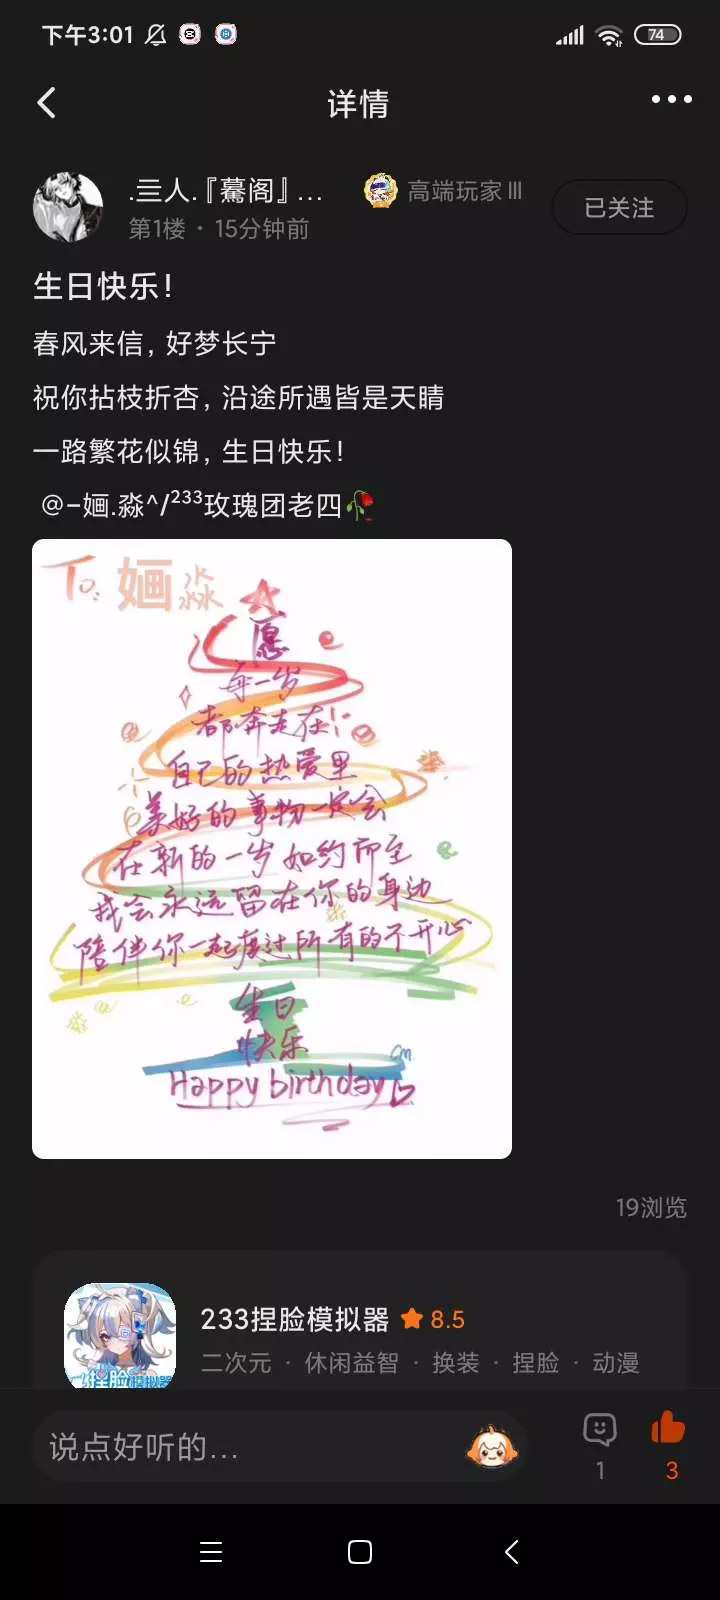 下午3:01
74
详情
.亖人.『驀阁』...
高端玩家Ⅲ
已关注
第1楼 · 15分钟前
生日快乐!
春风来信, 好梦长宁
祝你拈枝折杏, 沿途所遇皆是天晴
一路繁花似锦, 生日快乐!
@-婳.淼^/²³³玫瑰团老四🥀
To: 婳淼
愿
每一岁
都奔走在
自己的热爱里
美好的事物一定会
在新的一岁如约而至
我会永远留在你的身边
陪伴你一起度过所有的不开心
生日
快乐
Happy birthday
19浏览
233捏脸模拟器
8.5
二次元 · 休闲益智 · 换装 · 捏脸 · 动漫
捏脸模拟器
说点好听的...
1
3